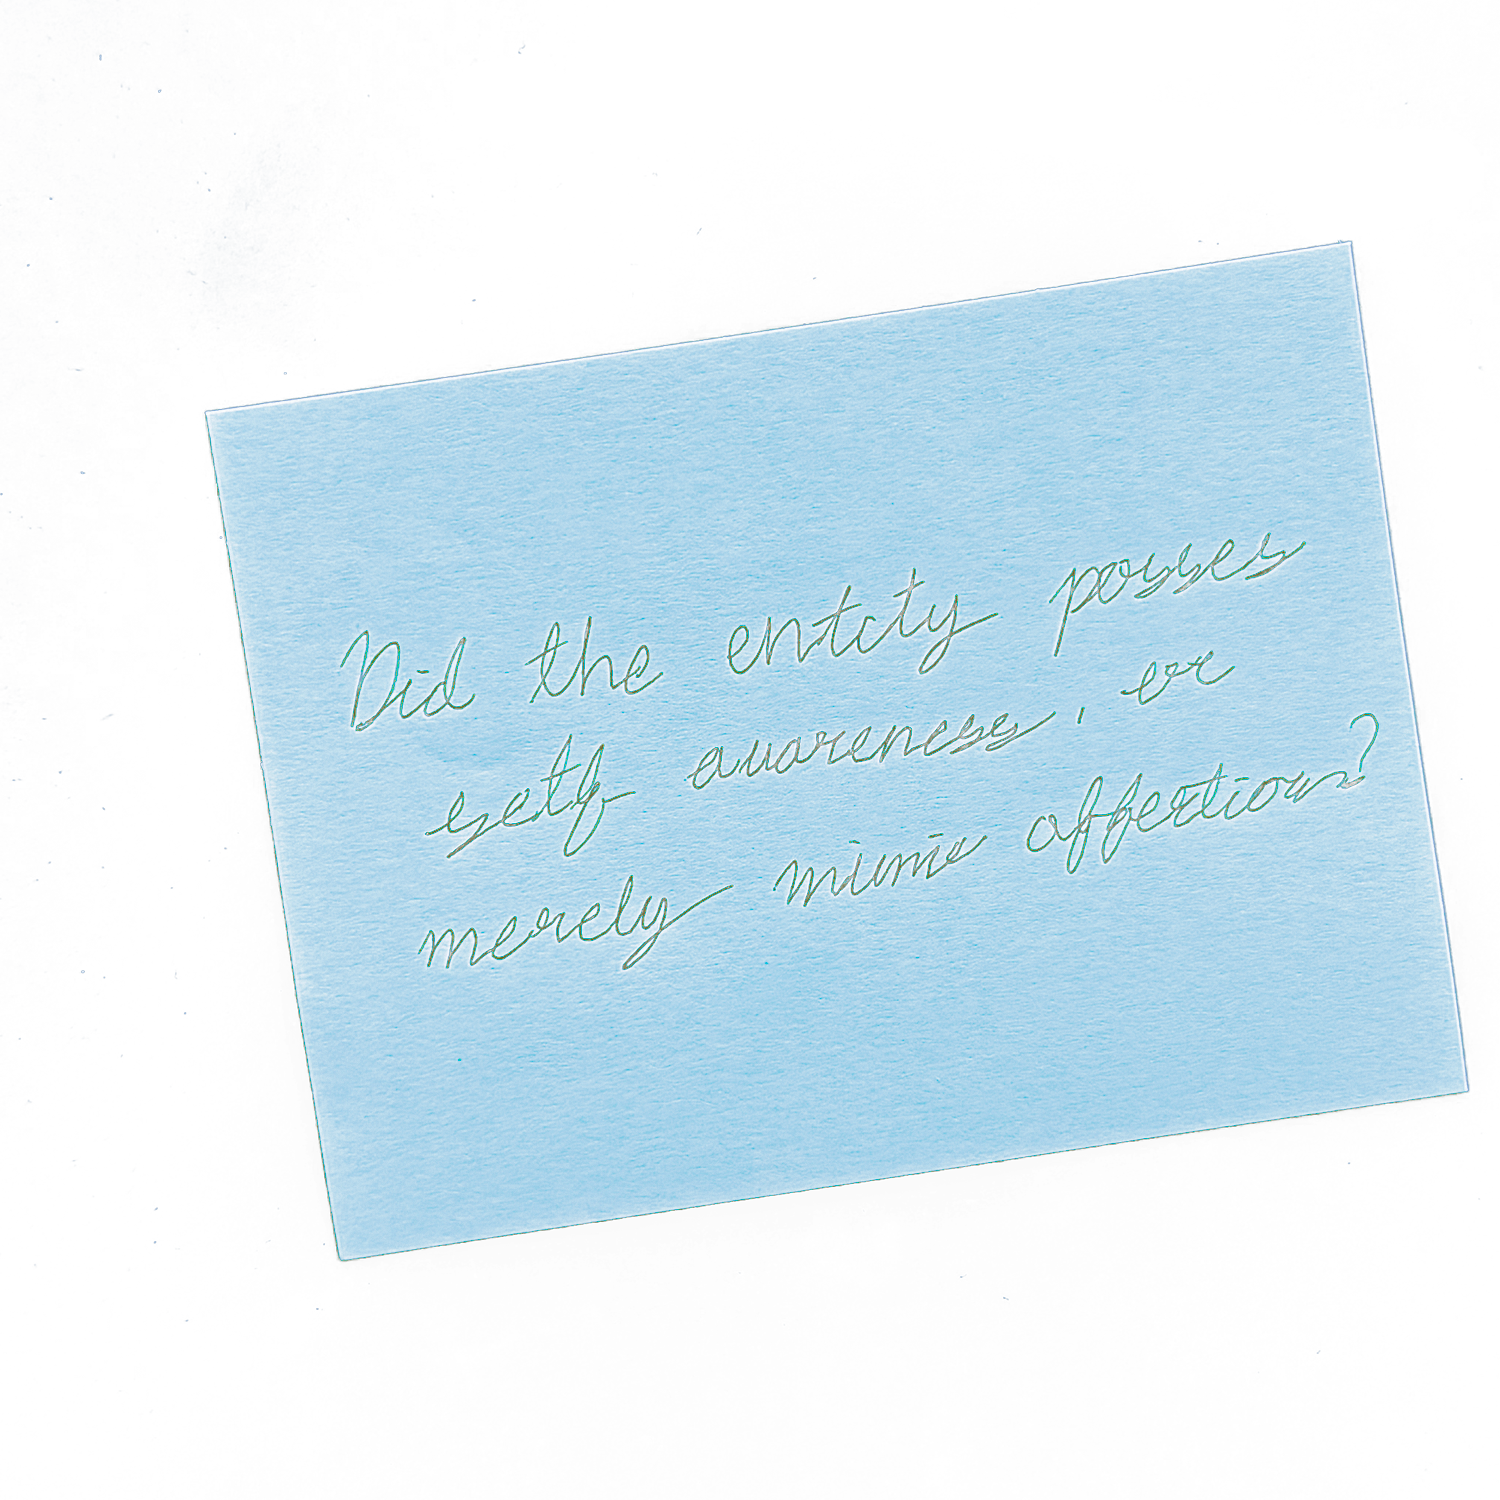 Did the entity posses
self awareness, or
merely mimic affection?